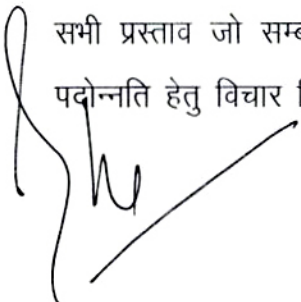 सभी प्रस्ताव जो
पदोन्नति हेतु विचार